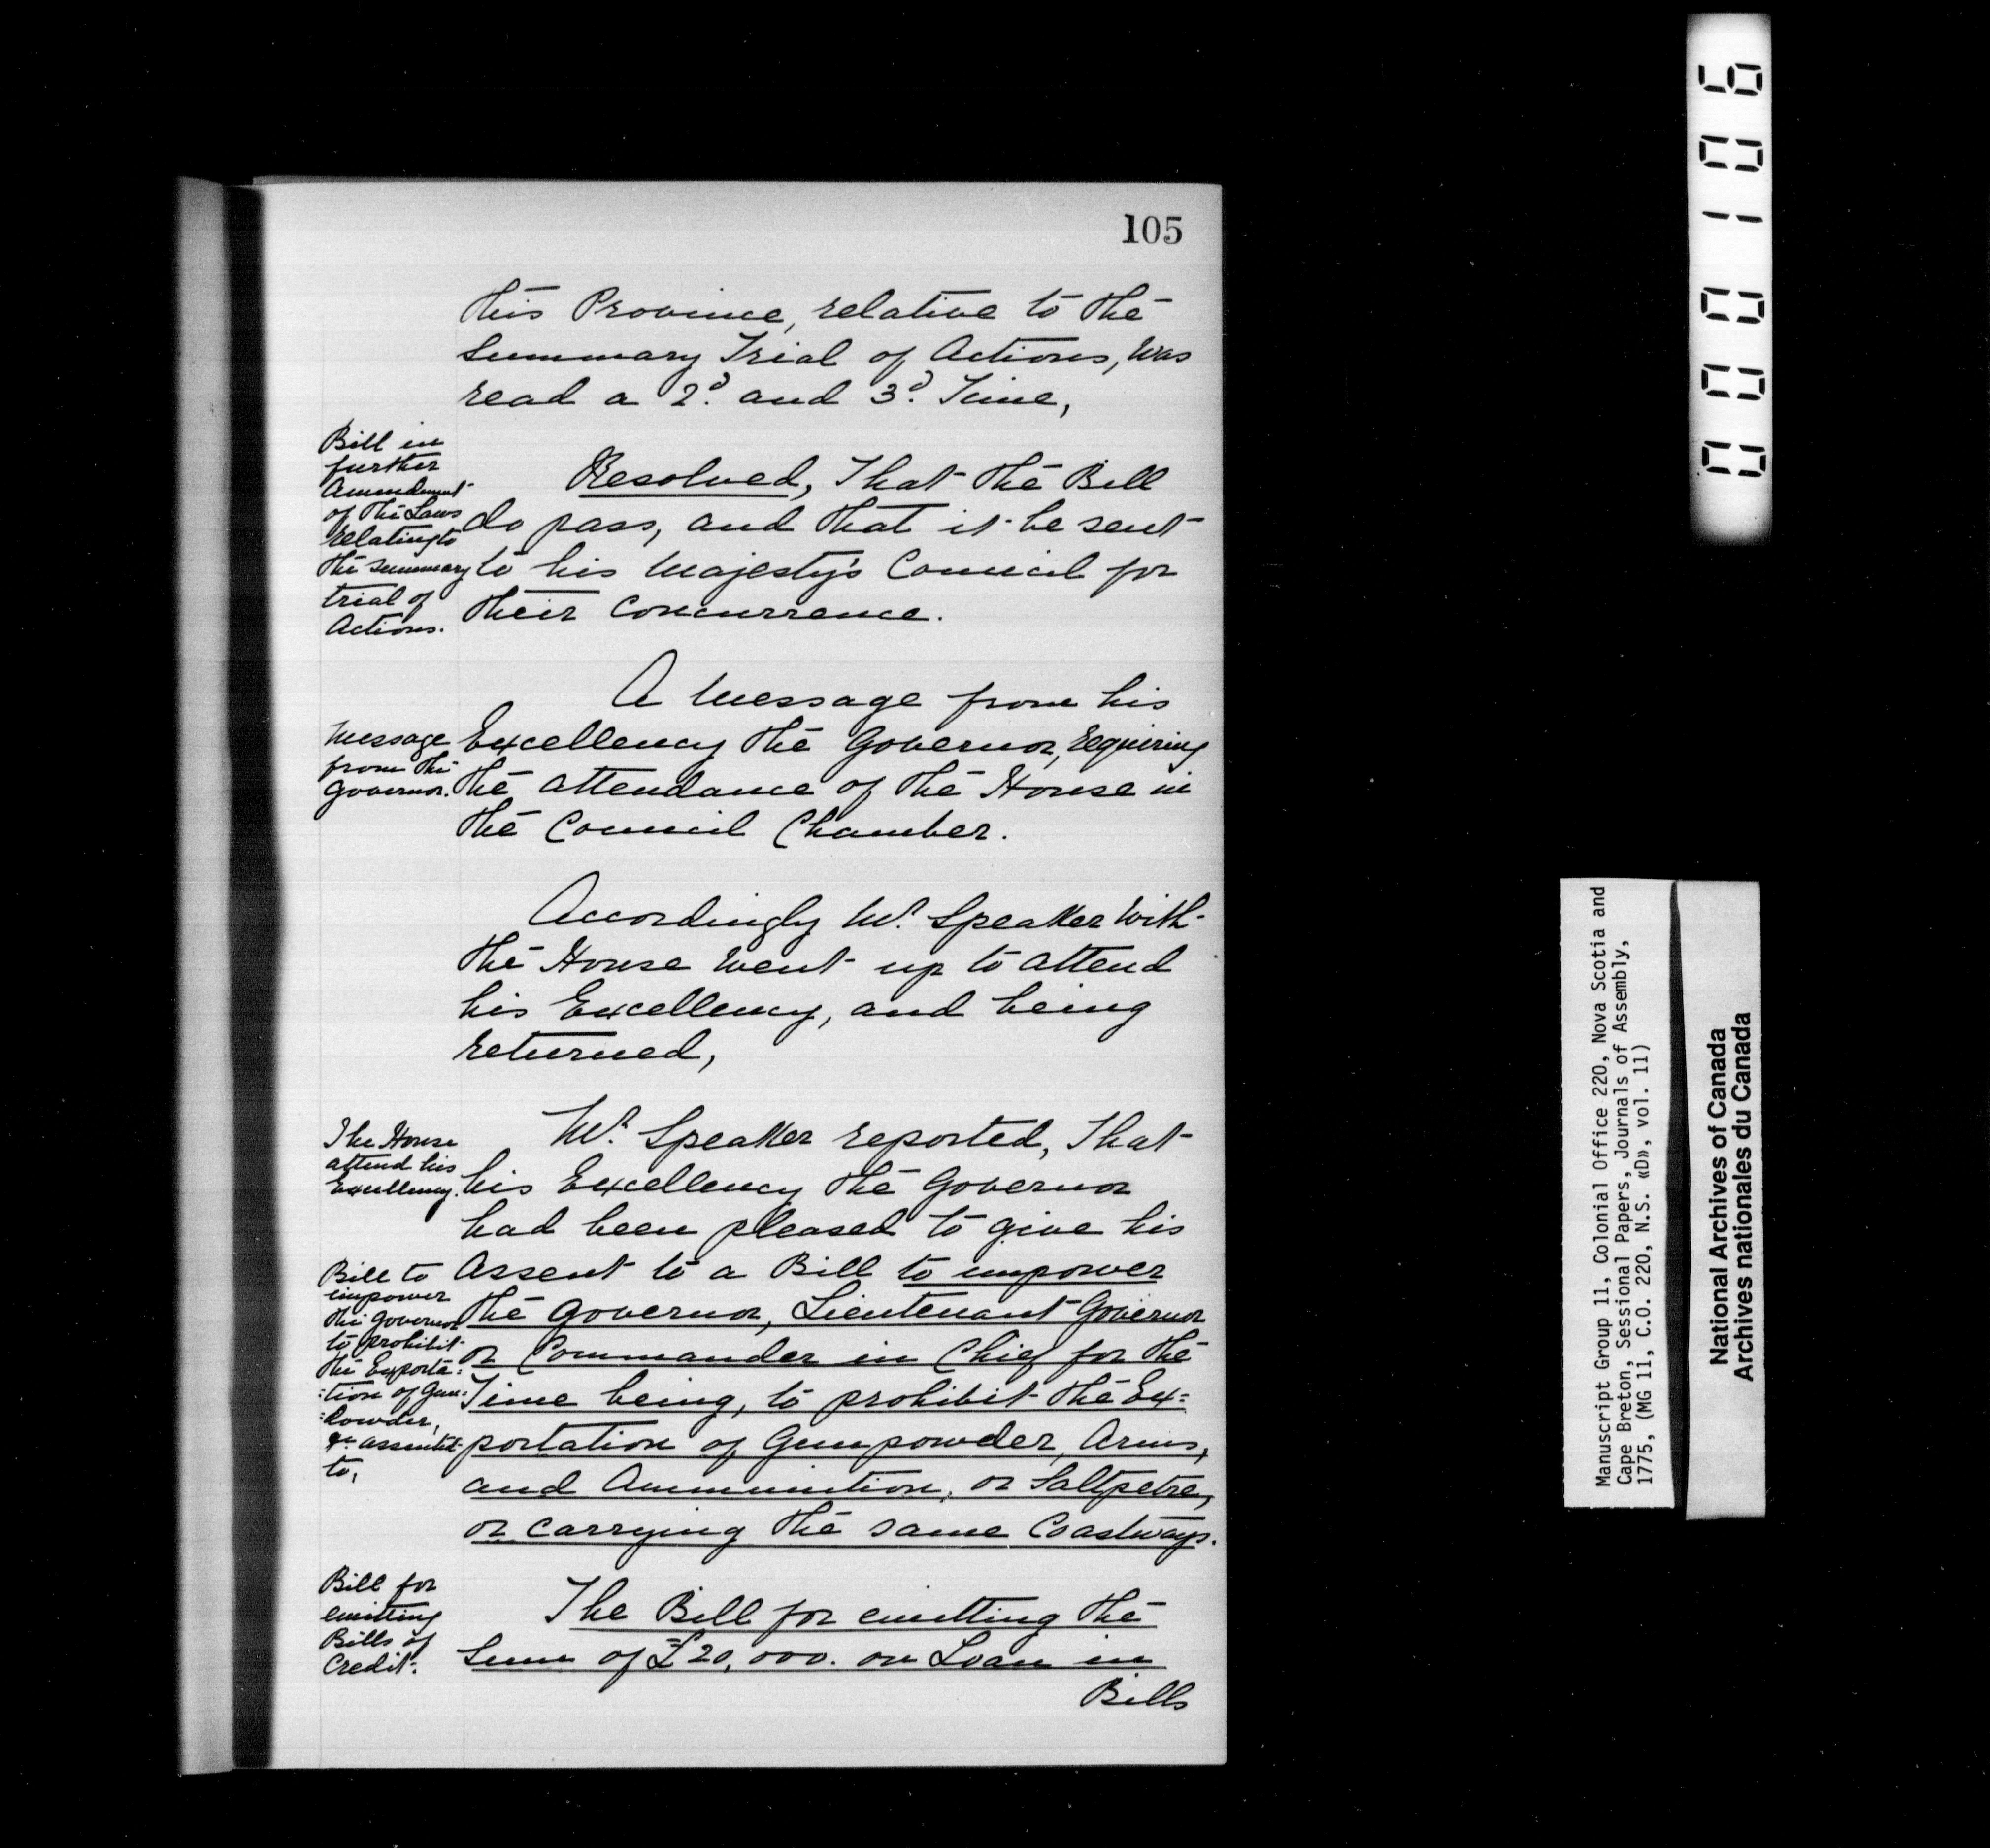 105
this Province, relative to the
Summary Trial of Actions, was
read a 2d. and 3d. Time,
Bill in
further
Amendment
of the Laws
relating to
the summary
trial of
Actions.
Resolved, That the Bill
do pass, and that it be sent
to his Majesty's Council for
their concurrence.
A Message from his
Message
from the
Governor.
Excellency the Governor, requiring
the attendance of the House in
the Council Chamber.
Accordingly Mr. Speaker with
the House went up to attend
his Excellency, and being
returned,
The House
attend his
Excellency.
Mr. Speaker reported, That
his Excellency the Governor
had been pleased to give his
Bill to
impower
the Governor
to prohibit
the Exporta=
=tion of Gun=
=powder,
&c. assented
to,
Assent to a Bill to impower
the Governor, Lieutenant Governor
or Commander in Chief for the
Time being, to prohibit the Ex=
portation of Gunpowder, Arms,
and Ammunition, or Saltpetre,
or carrying the same Coastways.
Bill for
emitting
Bills of
Credit.
The Bill for emitting the
Sum of £20,000. on Loan in
Bills
000106
Manuscript Group 11, Colonial Office 220, Nova Scotia and
Cape Breton, Sessional Papers, Journals of Assembly,
1775, (MG 11, C.O. 220, N.S. «D», vol. 11)
National Archives of Canada
Archives nationales du Canada